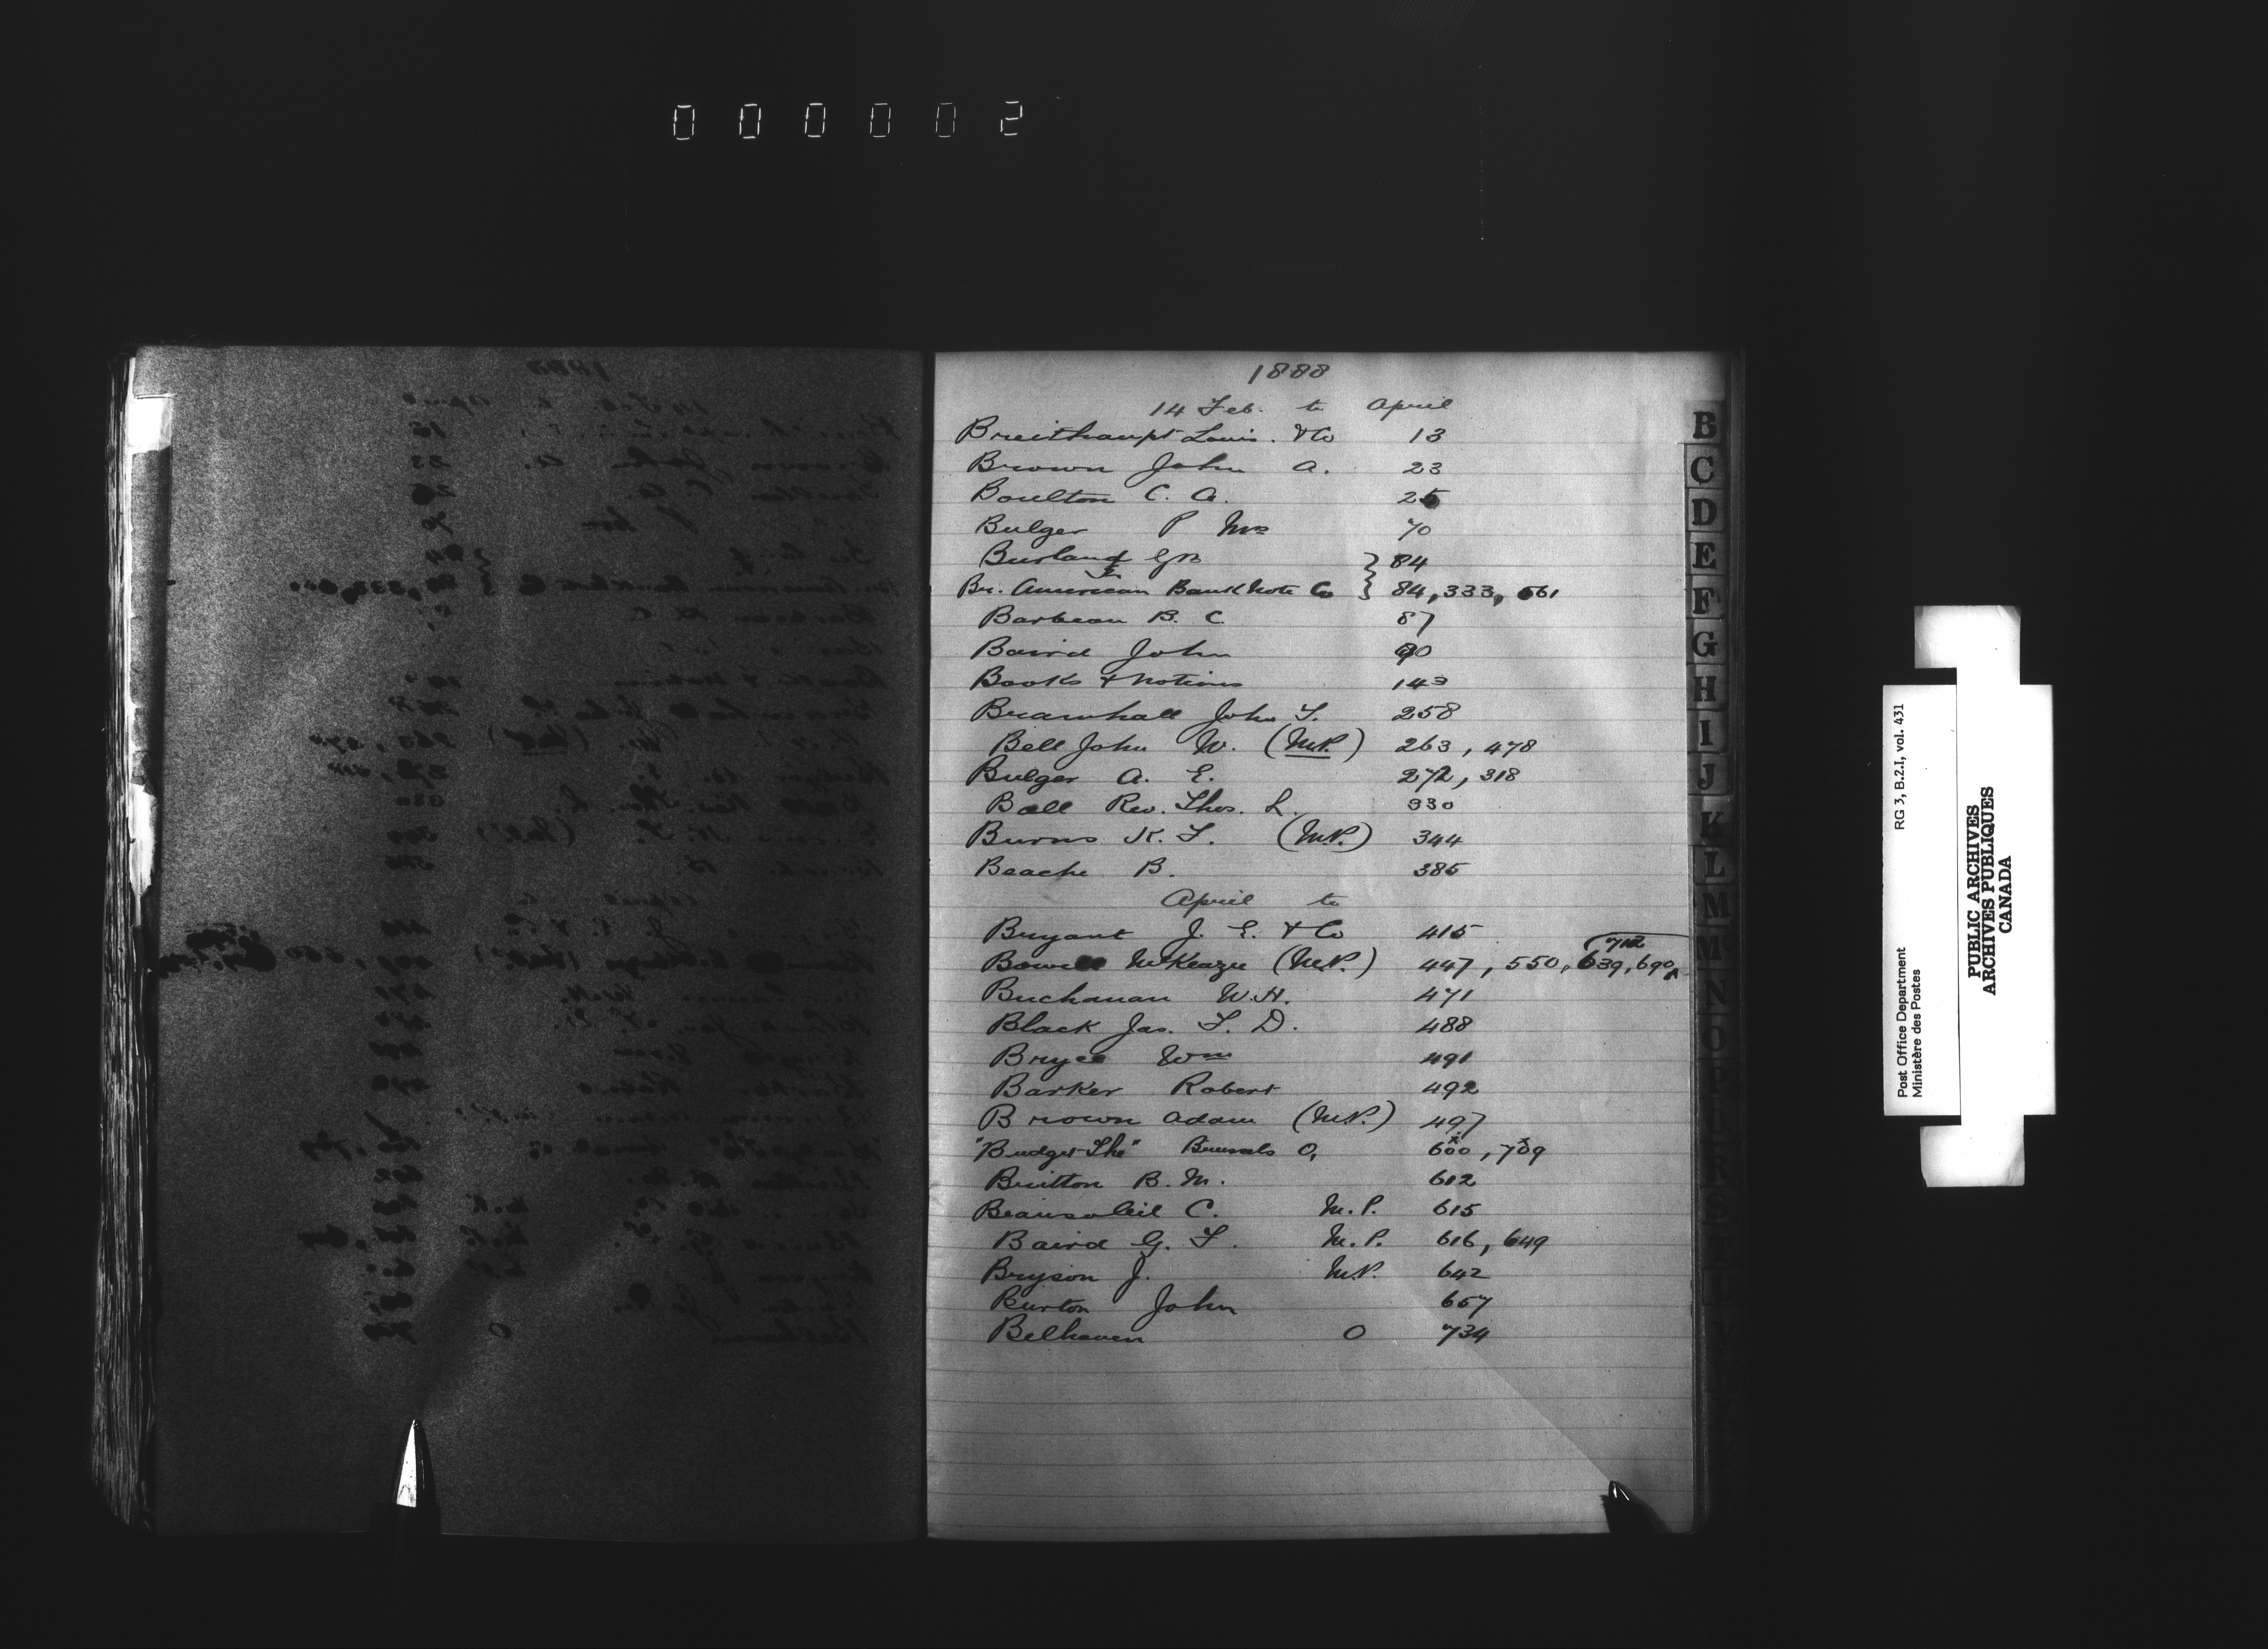 000002
1888
14 Feb. to April
Breithaupt Louis. & Co 13
Brown John A. 23
Boulton C. A. 25
Bulger P Mrs 70
Burland G B } 84
Br. American Bank Note Co } 84, 333, 561
Barbeau B. C. 87
Baird John 90
Books & Notions 143
Bramhall John T. 258
Bell John W. (M.P.) 263, 478
Bulger A. E. 272, 318
Ball Rev. Thos. L. 330
Burns K. F. (M.P.) 344
Beache B. 385
April to
Bryant J. E. & Co 415
712
Bowell McKenzie (M.P.) 447, 550, 639, 690
Buchanan W. H. 471
Black Jas. T. D. 488
Bryce Wm 491
Barker Robert 492
Brown Adam (M.P.) 497
"Budget The" Brussels O, 600, 709
Britton B. M. 612
Beausoleil C. M. P. 615
Baird G. F. M. P. 616, 649
Bryson J. M.P. 642
Burton John 657
Belhaven O 734
B
C
D
E
F
G
H
I
J
K
L
M
M
N
O
R
Post Office Department RG 3, B.2.I, vol. 431
Ministère des Postes
PUBLIC ARCHIVES
ARCHIVES PUBLIQUES
CANADA